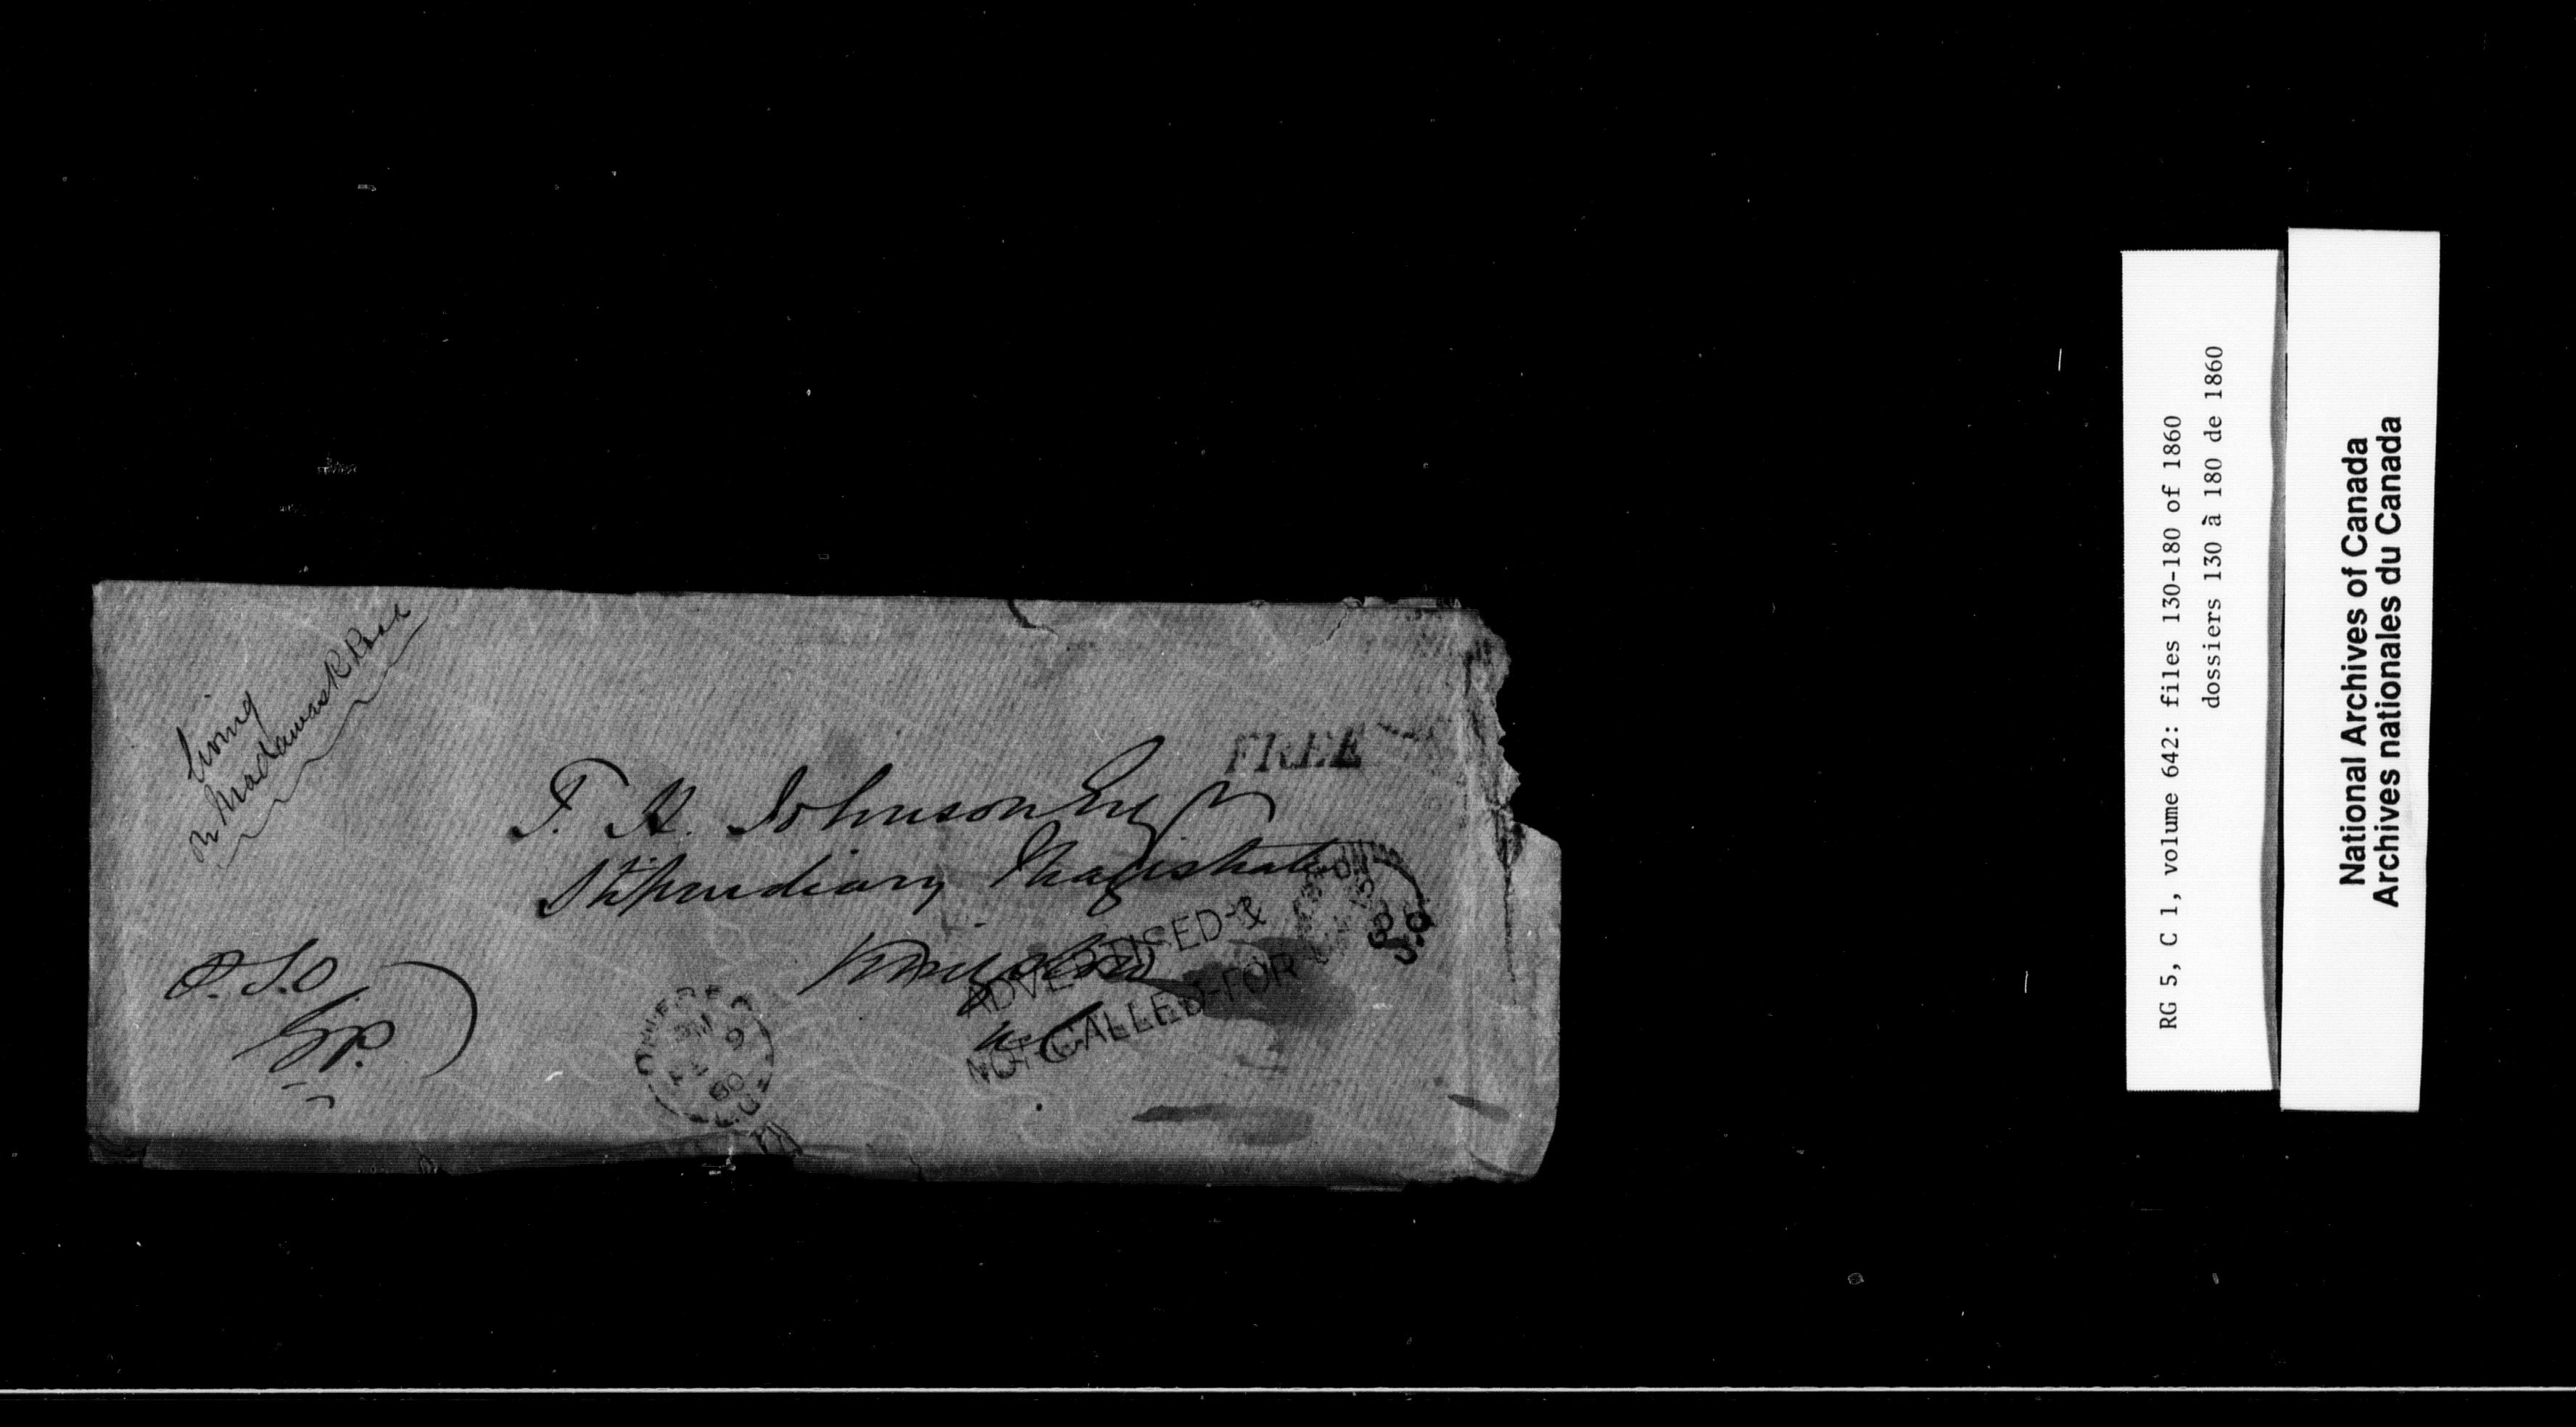 living
on Madawask Road
FREE
T. H. Johnson Esqr
Stipendiary Magistrate
ADVERTISED &
NOT-CALLED-FOR
P. S. O
QUEBEC
9
60
RG 5, C 1, volume 642: files 130-180 of 1860
dossiers 130 à 180 de 1860
National Archives of Canada
Archives nationales du Canada